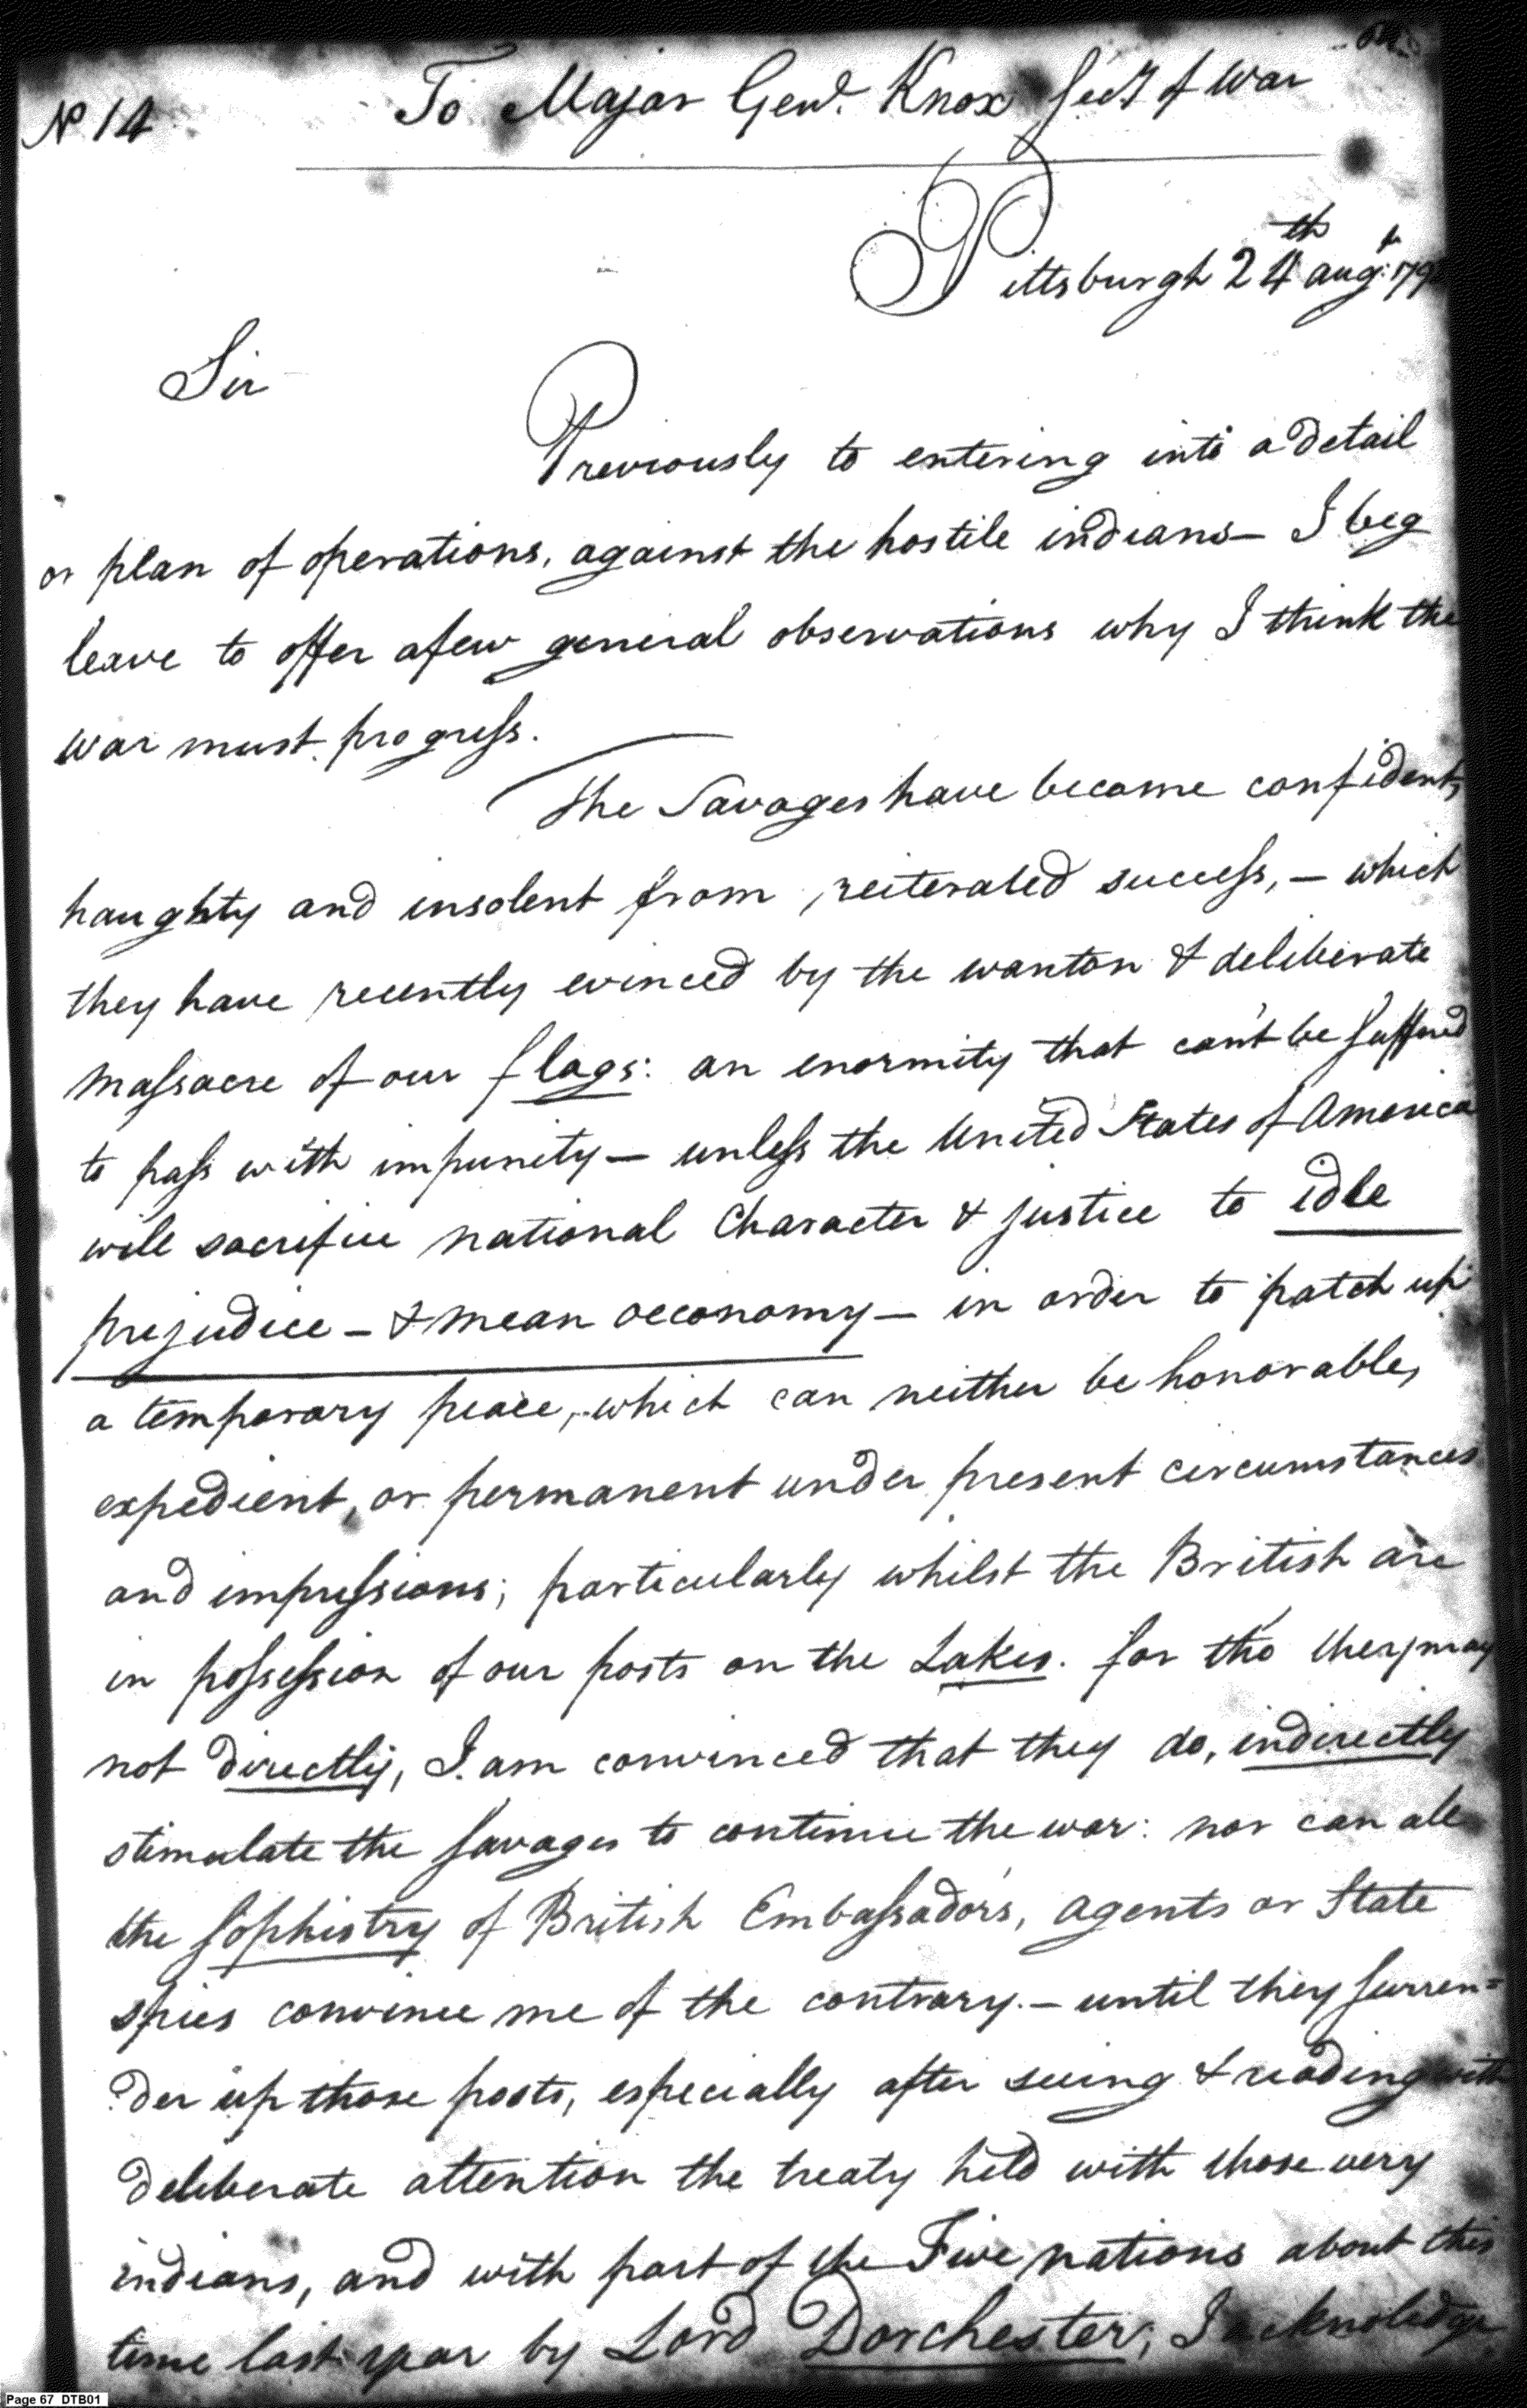 No 14 To Major Genl. Knox Secy of War
Pittsburgh 24th augt: 179
Sir
Previously to entering into a detail
or plan of operations, against the hostile indians— I beg
leave to offer a few general observations why I think the
war must progress.
The Savages have become confident,
haughty and insolent from reiterated success, — which
they have recently evinced by the wanton & deliberate
massacre of our flags: an enormity that can't be suffered
to pass with impunity — unless the United States of America
will sacrifice national Character & justice to idle
prejudice — & mean oeconomy — in order to patch up
a temporary peace, which can neither be honorable,
expedient, or permanent under present circumstances
and impressions; particularly whilst the British are
in possession of our posts on the Lakes. for tho' they may
not directly, I am convinced that they do, indirectly
stimulate the Savages to continue the war: nor can all
the Sophistry of British Embassadors, agents or State
spies convince me of the contrary. — until they surren=
der up those posts, especially after seeing & reading with
deliberate attention the treaty held with those very
indians, and with part of the Five nations about this
time last year by Lord Dorchester; I acknoledge
Page 67 DTB01